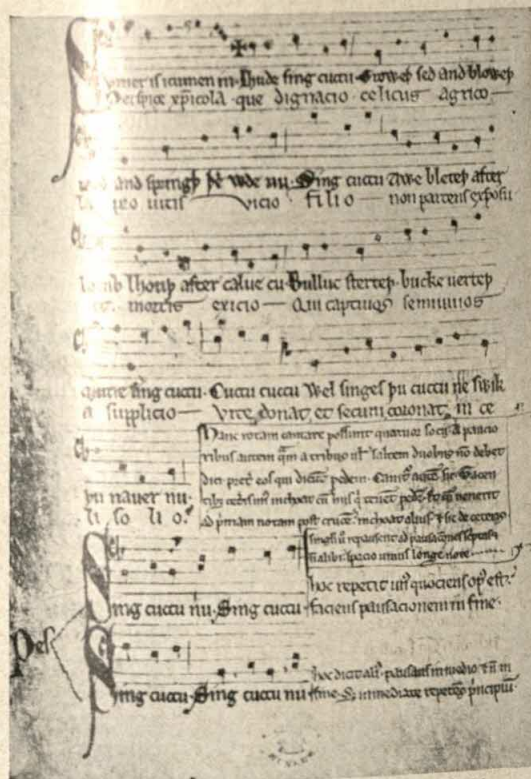 Sumer is icumen in. Lhude sing cuccu. Groweþ sed and bloweþ
Perspice xp̄icola que dignacio celicus agrico
med and springþ þe wde nu. Sing cuccu Awe bleteþ after
la pro uitis vicio filio non parcens exposu
lomb lhouþ after calue cu. Bulluc sterteþ. bucke uerteþ
it mortis exicio Qui captiuos semiuiuos
murie sing cuccu. Cuccu cuccu Wel singes þu cuccu ne swik
a supplicio Vite donat et secum coronat in ce
þu nauer nu.
li so li o.
Hanc rotam cantare possunt quatuor socij. A paucio
ribus autem a tribus uel saltem duobus non debet
dici preter eos qui dicunt pedem. Canitur autem sic. Tacen
tibus ceteris unus inchoat cum hijs qui tenent pedem. Et cum uenerit
ad primam notam post crucem. inchoat alius. et sic de ceteris
singuli uero repausent ad pausaciones scriptas
et non alibi. spacio unius longe note.
Pes
Sing cuccu nu. Sing cuccu.
hoc repetit unus quociens opus est.
faciens pausacionem in fine.
Sing cuccu. Sing cuccu nu
hoc dicit alius. pausans in medio et non in
fine. Sed immediate repetens principium.